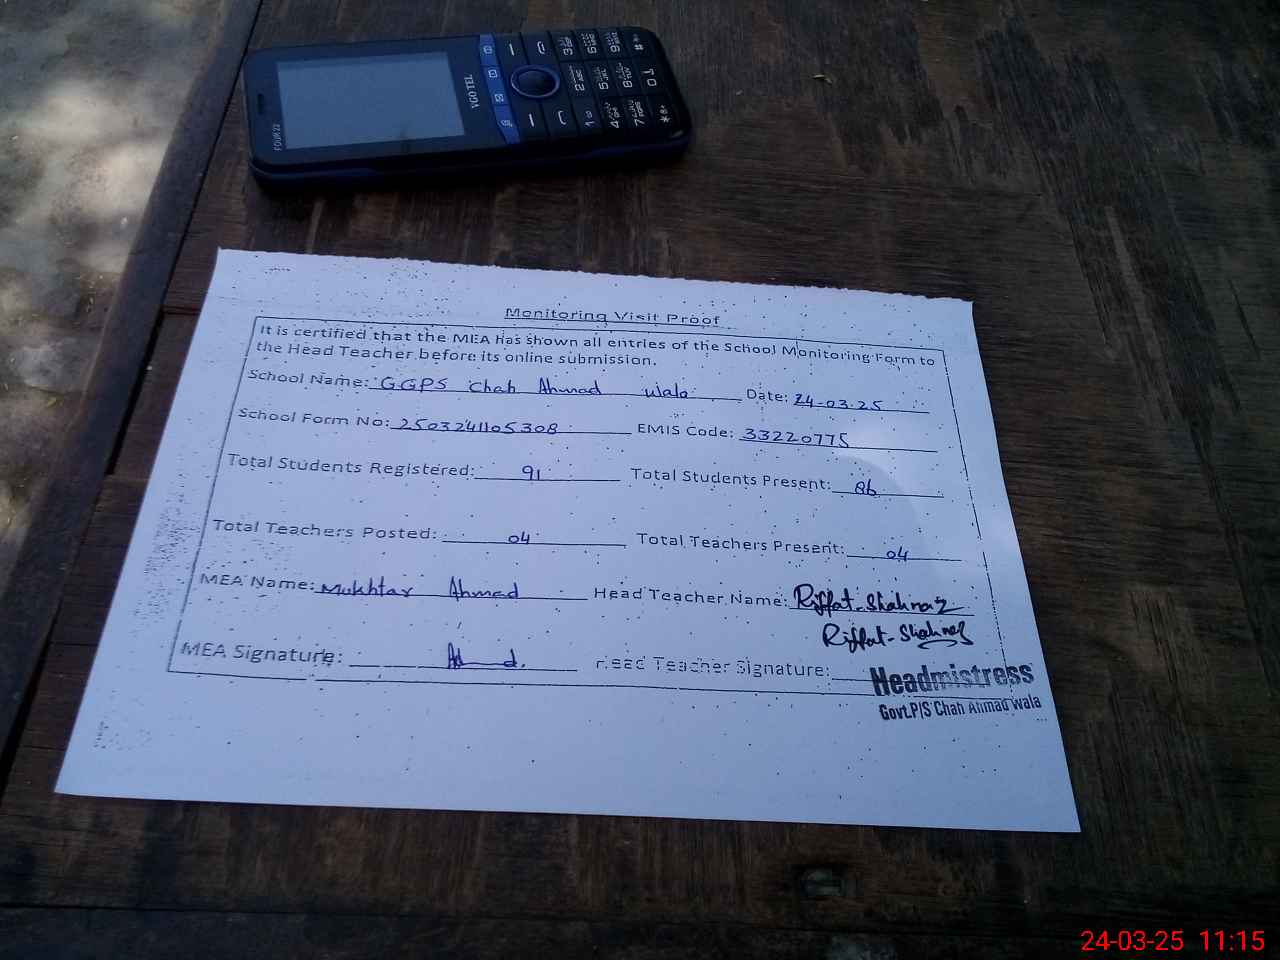 FOUR22
VGO TEL
Monitoring Visit Proof
It is certified that the MEA has shown all entries of the School Monitoring Form to
the Head Teacher before its online submission.
School Name: GGPS Chah Ahmad wala Date: 24-03-25
School Form No: 2503241105308 EMIS Code: 33220775
Total Students Registered: 91 Total Students Present: 86
Total Teachers Posted: 04 Total Teachers Present: 04
MEA Name: Mukhtar Ahmad Head Teacher Name: Riffat-Shahnaz
Riffat-Shahnaz
MEA Signature: Head Teacher Signature:
Headmistress
Govt.P/S Chah Ahmad Wala
24-03-25 11:15